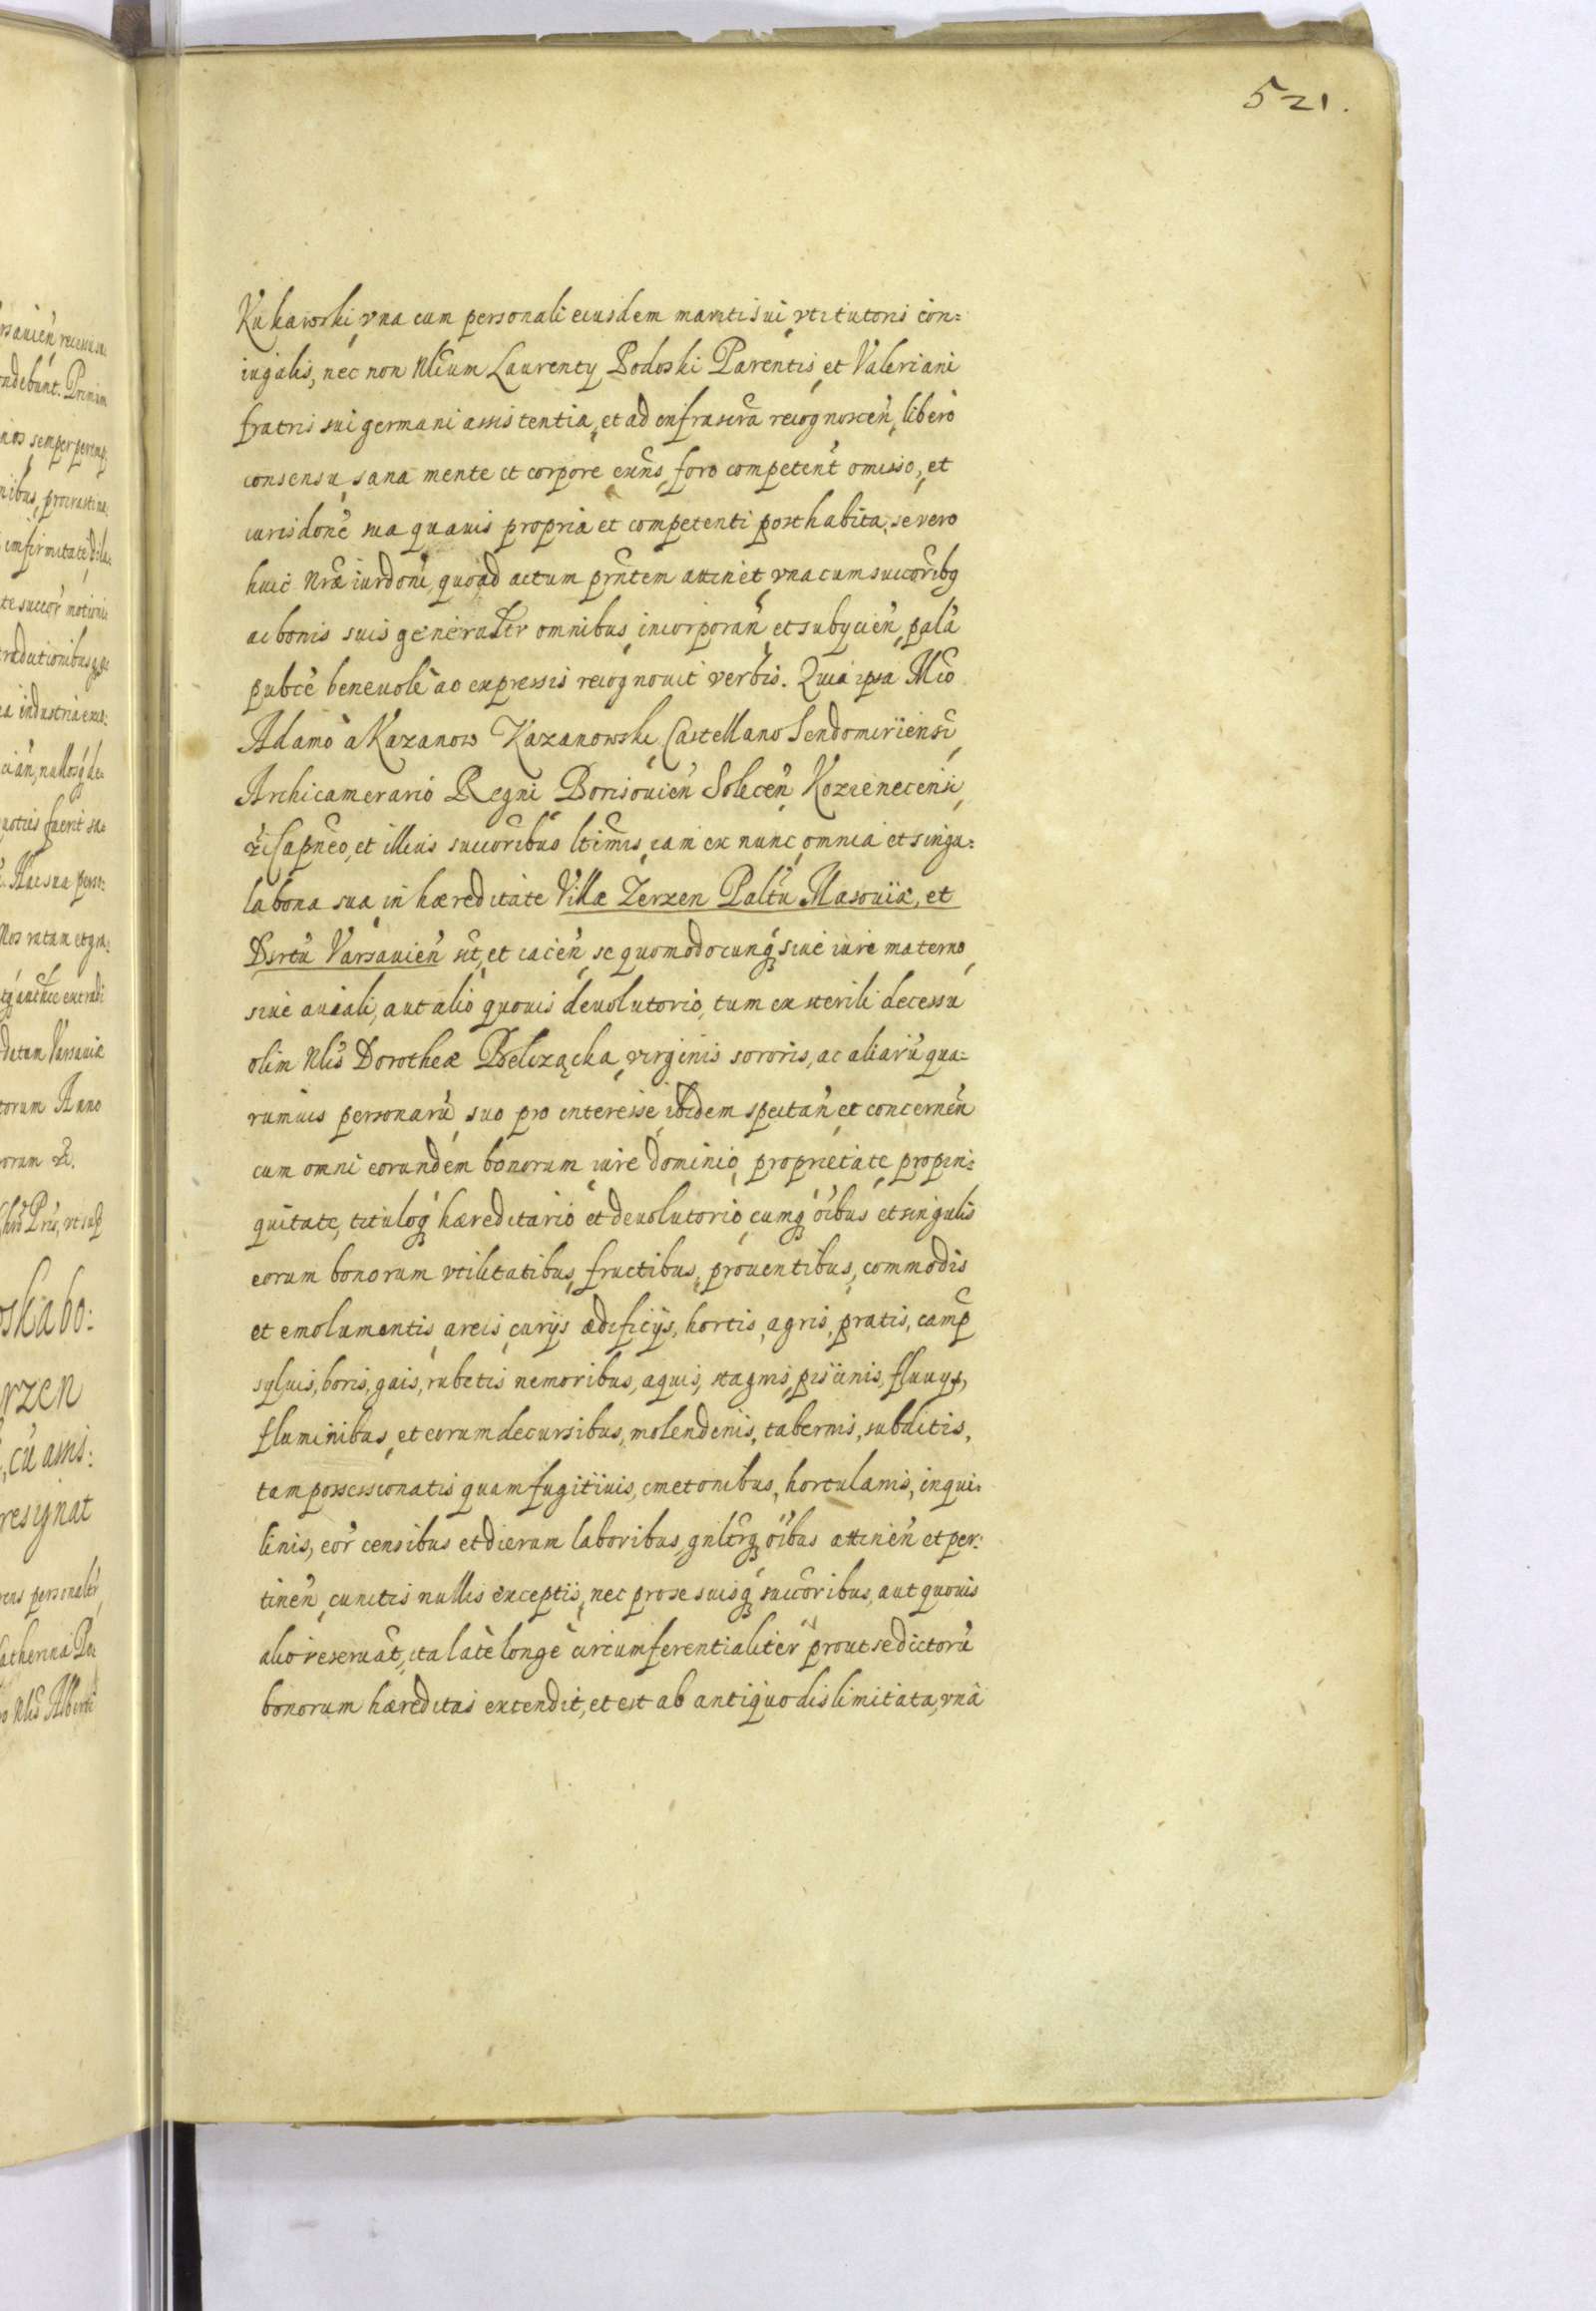 521.
Kukawski, vna cum personali eiusdem mariti sui vti tutoris con=
iugalis, nec non Nlium Laurenty Podoski Parentis, et Valeriani
fratris sui germani assistentia, et ad infrascra recognoscen, libero
consensu, sana mente et corpore exns, foro competent omisso, et
iurisdone sua quauis propria et competenti posthabita, se vero
huic Nrae iurdoni, quoad actum prntem attinet, vna cum succoribq
ac bonis suis generalr omnibus, incorporan, et subycien, pala
pubce beneuole ac expressis recognouit verbis. Quia ipsa Mco
Adamo à Kazanow Kazanowski, Castellano Sendomiriensi,
Archicamerario Regni Borisouien Solecen, Kozienecensi,
&c Capneo, et illius succoribus ltimis, iam ex nunc, omnia et singu=
la bona sua, in haereditate Villae Zerzen Paltu Masouiae, et
Dsrtu Varsauien sit, et iacen, se quomodocunq, siue iure materno,
siue auiali, aut alio quouis deuolutorio, tum ex sterili decessu
olim Nlis Dorotheae Belczącka, virginis sororis, ac aliaru qua=
rumuis personaru, suo pro interesse, ibidem spectan, et concernen
cum omni eorundem bonorum, iure dominio, proprietate, propin=
quitate, tituloq haereditario et deuolutorio, cumq oibus et singulis
eorum bonorum vtilitatibus, fructibus, prouentibus, commodis
et emolumentis, areis, curijs aedificijs, hortis, agris, pratis, camp
syluis, boris, gais, rubetis nemoribus, aquis, stagnis, piscinis, fluuys,
fluminibus, et eorum decursibus, molendinis, tabernis, subditis,
tam possessionatis quam fugitiuis, cmetonibus, hortulanis, inqui=
linis, eor censibus et dierum laboribus, gnltrq oibus attinen et per=
tinen, cunctis nullis exceptis, nec pro se suisq succoribus, aut quouis
alio reseruat, ita late longe circumferentialiter prout se dictoru
bonorum haereditas extendit, et est ab antiquo dislimitata, vna